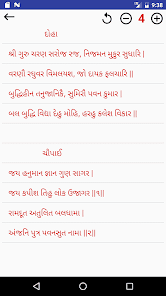 9:38
4
દોહા
શ્રી ગુરુ ચરણ સરોજ રજ, નિજમન મુકુર સુધારિ |
વરણૌ રઘુવર વિમલયશ, જો દાયક ફલચારિ ||
બુદ્ધિહીન તનુજાનિકૈ, સુમિરૌ પવન કુમાર |
બલ બુદ્ધિ વિદ્યા દેહુ મોહિ, હરહુ કલેશ વિકાર ||
ચૌપાઈ
જય હનુમાન જ્ઞાન ગુણ સાગર |
જય કપીશ તિહુ લોક ઉજાગર ||૧||
રામદૂત અતુલિત બલધામા |
અંજનિ પુત્ર પવનસુત નામા ||૨||